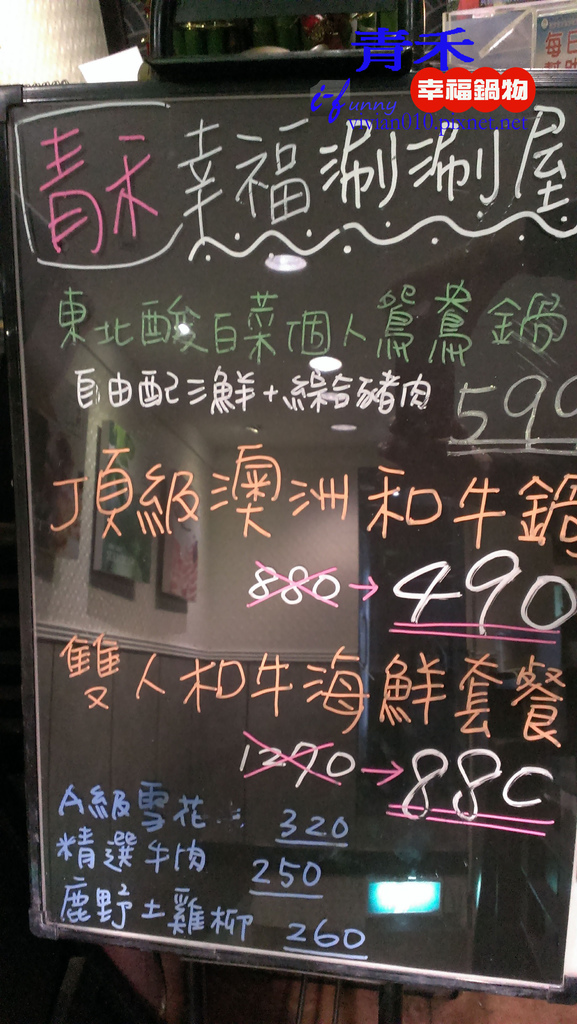 青禾
幸福鍋物
i-funny
vivian010.pixnet.net
每日
青禾 幸福涮涮屋
東北酸白菜個人鴛鴦鍋
自由配三鮮+綜合豬肉 590
頂級澳洲和牛鍋
880→490
雙人和牛海鮮套餐
1290→880
A級雪花: 320
精選牛肉 250
鹿野土雞柳 260